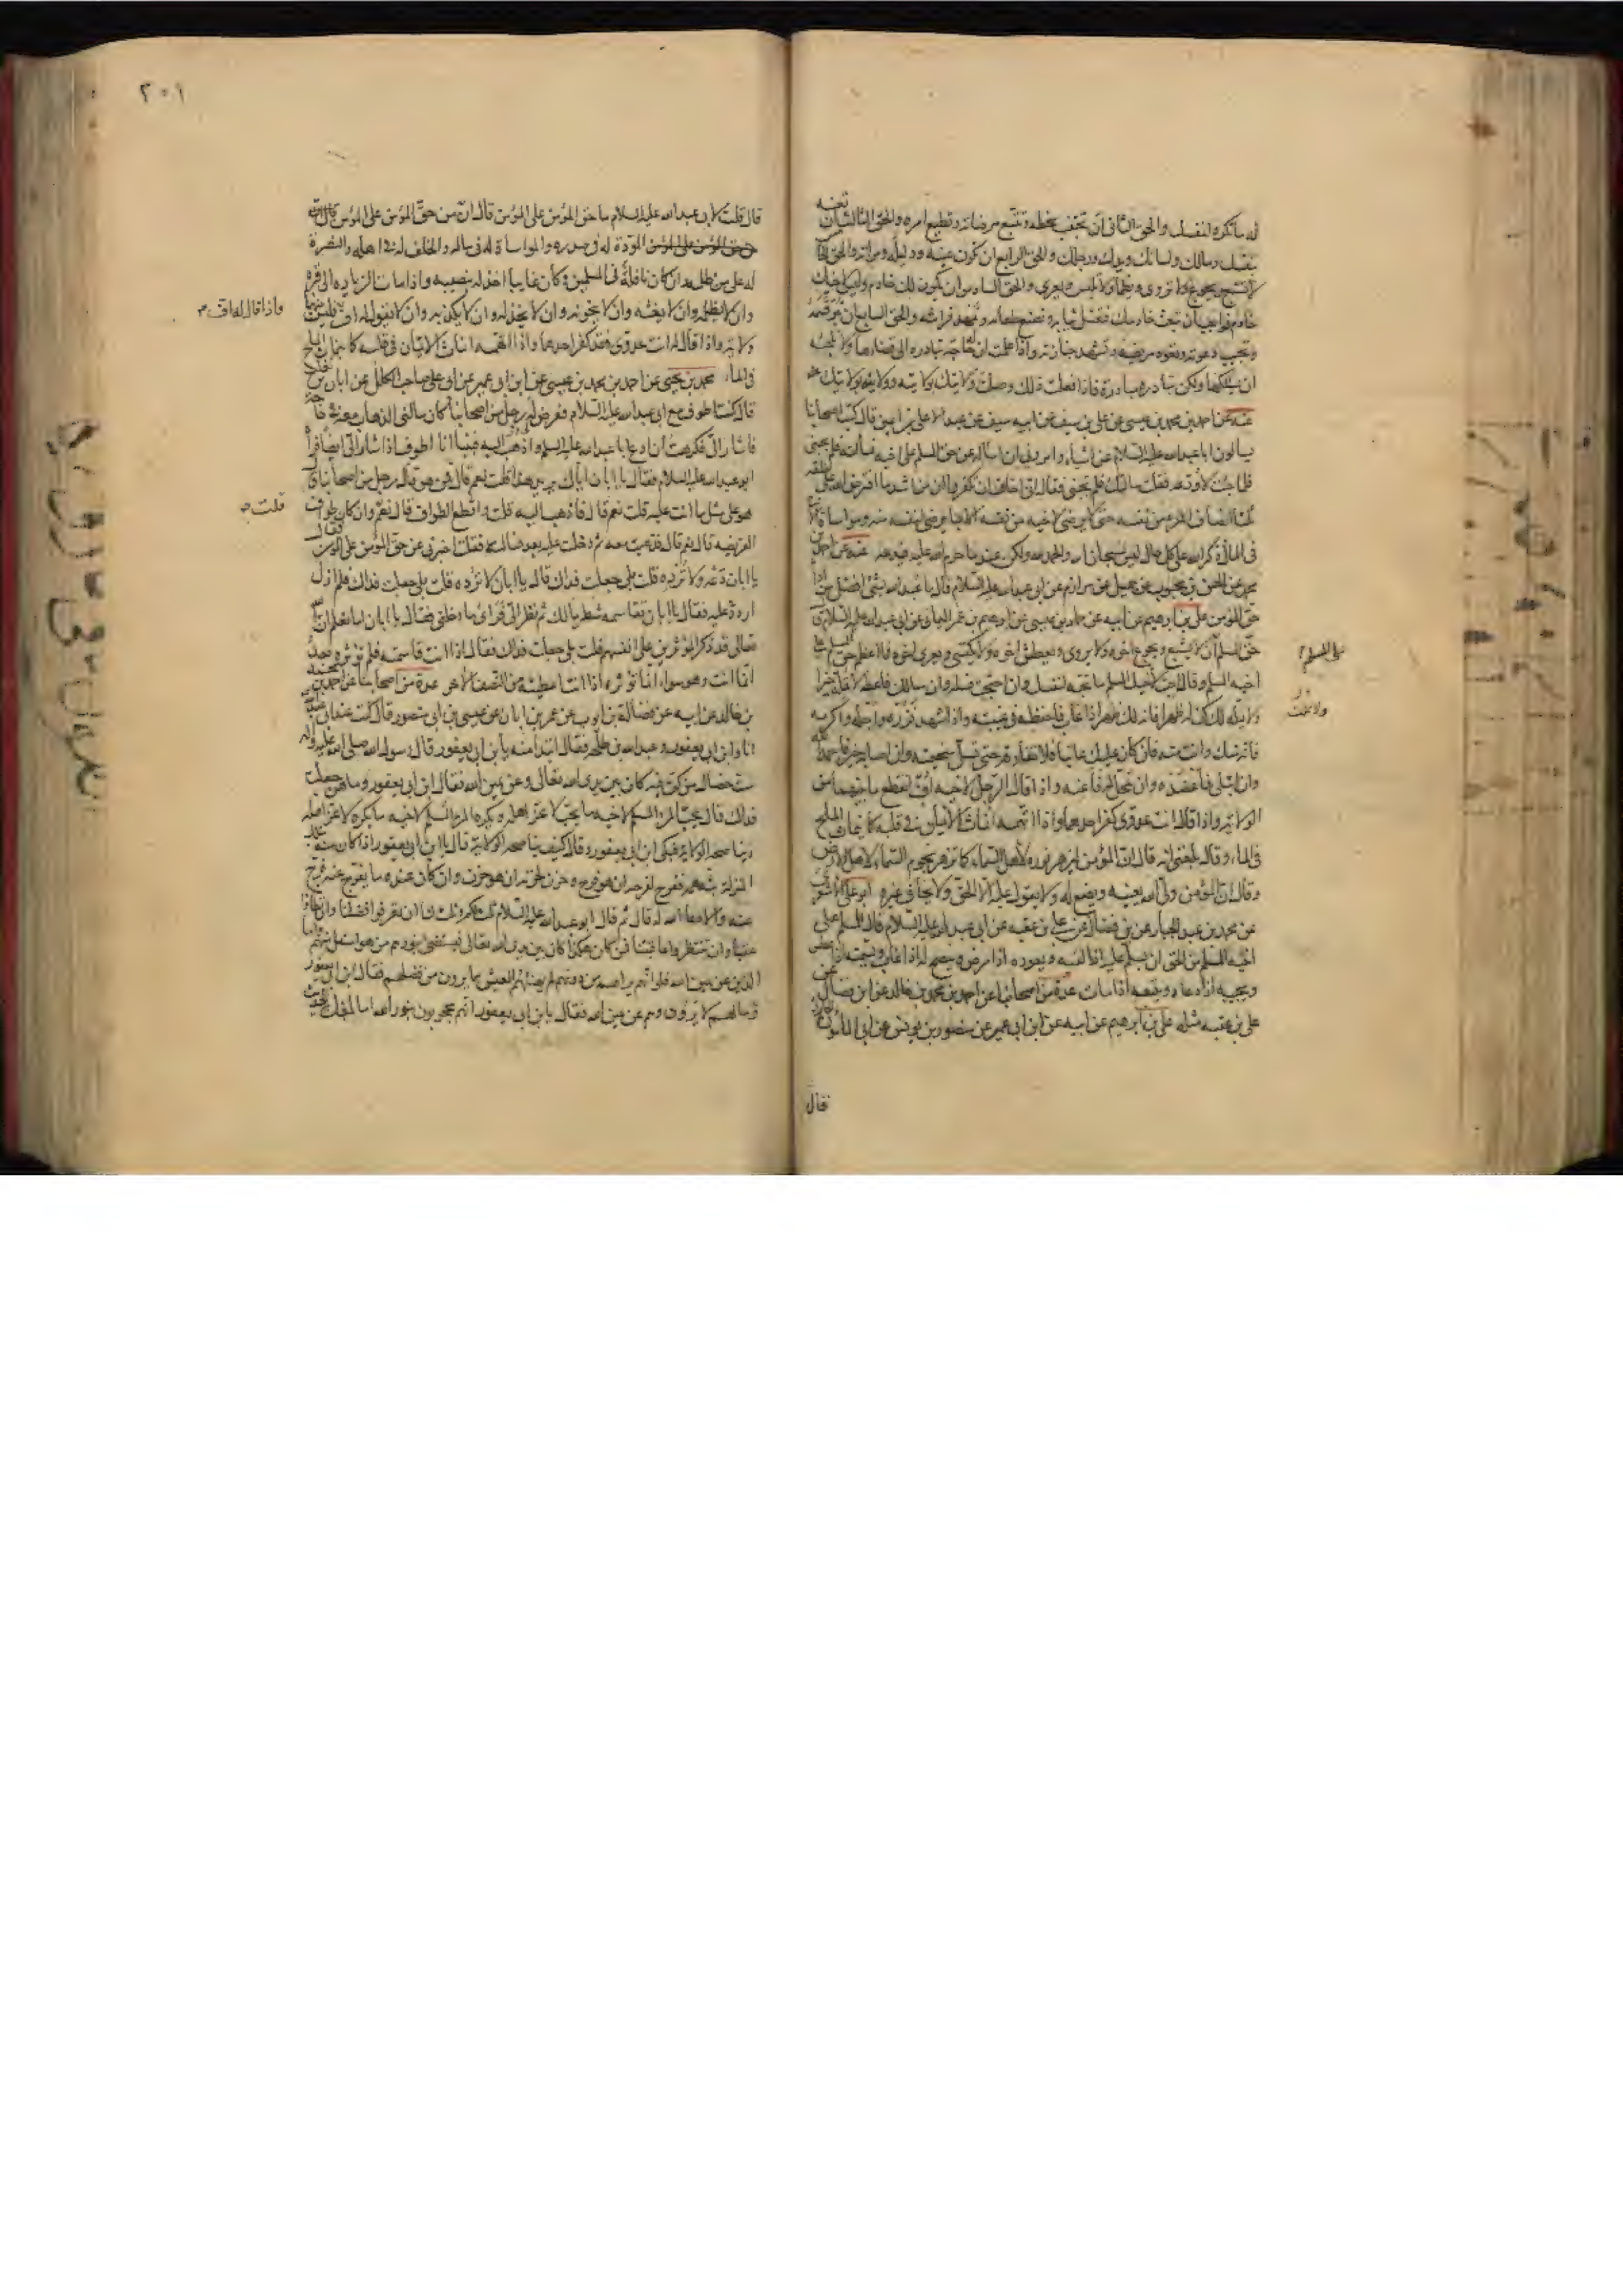 له ما تكره لنفسك والحق الثاني ان تجتنب سخطه وتتبع مرضاته وتطيع امره والحق الثالث ان تعينه
بنفسك ومالك ولسانك ويدك ورجلك والحق الرابع ان تكون عينه ودليله ومرآته والحق
لا تشبع ويجوع ولا تروى ويظمأ ولا تلبس ويعرى والحق السادس ان يكون لك خادم وليس لاخيك
خادم فواجب ان تبعث خادمك فتغسل ثيابه وتصنع طعامه وتمهد فراشه والحق السابع ان تبر قسمه
وتجيب دعوته وتعود مريضه وتشهد جنازته واذا علمت ان له حاجة تبادره الى قضاءها ولا تلجئه
ان يسألكها ولكن تبادره مبادرة فاذا فعلت ذلك وصلت ولايتك بولايته وولايته بولايتك
عنه عن احمد بن محمد بن عيسى عن علي بن سيف عن ابيه سيف عن عبد الاعلى بن اعين قال كتب اصحابنا
يسألون ابا عبد الله عليه السلام عن اشياء وامروني ان اساله عن حق المسلم على اخيه فسألته فلم يجبني
فلما جئت لاودعه فقلت سألتك فلم تجبني فقال اني اخاف ان تكفروا ان من اشد ما افترض الله على خلقه
ثلثا انصاف المرء من نفسه حتى لا يرضى لاخيه من نفسه الا بما يرضى لنفسه منه ومواساة الاخ
في المال وذكر الله على كل حال ليس سبحان الله والحمد لله ولكن عند ما حرم الله عليه فيدعه عنه عن احمد بن
محمد عن الحسن بن محبوب عن جميل عن مرازم عن ابي عبد الله عليه السلام قال ما عبد الله بشئ افضل من اداء
حق المؤمن علي بن ابرهيم عن ابيه عن حماد بن عيسى عن ابرهيم بن عمر اليماني عن ابي عبد الله عليه السلام قال
حق المسلم ان لا يشبع ويجوع اخوه ولا يروى ويعطش اخوه ولا يكتسي ويعرى اخوه فما اعظم حق المسلم على
على المسلم
اخيه المسلم وقال احب لاخيك المسلم ما تحبه لنفسك وان احتجت فسله وان سالك فاعطه لا تمله خيرا
ولا يمله لك كن له ظهرا فانه لك ظهر اذا غاب فاحفظه في غيبته واذا شهد فزره واجله واكرمه
فانه منك وانت منه فان كان عليك عاتبا فلا تفارقه حتى تسل سخيمته وان اصابه خير فاحمد الله
وان ابتلي فاعضده وان تمحل له فاعنه واذا قال الرجل لاخيه اف انقطع ما بينهما من
الولاية واذا قال انت عدوي كفر احدهما واذا اتهمه انماث الايمان في قلبه كما ينماث الملح
في الماء وقال بلغني انه قال ان المؤمن ليزهر نوره لاهل السماء كما تزهر نجوم السماء لاهل الارض
وقال ان المؤمن ولي الله يعينه ويصنع له ولا يقول عليه الا الحق ولا يخاف غيره ابو علي الاشعري
عن محمد بن عبد الجبار عن ابن فضال عن علي بن عقبه عن ابي عبد الله عليه السلام قال للمسلم على
اخيه المسلم من الحق ان يسلم عليه اذا لقيه ويعوده اذا مرض وينصح له اذا غاب ويسمته اذا عطس
ويجيبه اذا دعاه ويتبعه اذا مات عدة من اصحابنا عن احمد بن محمد بن خالد عن ابن فضال عن
علي بن عقبه مثله علي بن ابرهيم عن ابيه عن ابن ابي عمير عن منصور بن يونس عن ابي المأمون
فقال
٢٠١
قال قلت لابي عبد الله عليه السلام ما حق المؤمن على المؤمن قال ان من حق المؤمن على المؤمن
حق المؤمن على المؤمن المودة له في صدره والمواساة له في ماله والخلف له في اهله والنصرة
له على من ظلمه وان كان نافلة في المسلمين وكان غايبا اخذ له بنصيبه واذا مات الزيارة الى قبره
وان لا يظلمه وان لا يغشه وان لا يخونه وان لا يخذله وان لا يكذبه وان لا يقول له اف فليس بينهما
واذا قال له اف
ولاية واذا قال له انت عدوي فقد كفر احدهما واذا اتهمه انماث الايمان في قلبه كما ينماث الملح
في الماء محمد بن يحيى عن احمد بن محمد بن عيسى عن ابن ابي عمير عن ابي علي صاحب الكلل عن ابان بن تغلب
قال كنت اطوف مع ابي عبد الله عليه السلام فعرض لي رجل من اصحابنا كان سالني الذهاب معه في حاجة
فاشار الي فكرهت ان ادع ابا عبد الله عليه السلم واذهب اليه فبينا انا اطوف اذ اشار الي ايضا فراه
ابو عبد الله عليه السلام فقال يا ابان اياك يريد هذا قلت نعم قال فمن هو قال رجل من اصحابنا قال
هو على مثل ما انت عليه قلت نعم قال فاذهب اليه قلت واقطع الطواف قال نعم وان كان طواف
قلت
الفريضه قال نعم قال فذهبت معه ثم دخلت عليه بعد فسالته فقلت اخبرني عن حق المؤمن على المؤمن فقال
يا ابان دعه ولا ترده قلت بلى جعلت فداك قال يا ابان لا ترده قلت بلى جعلت فداك فلم ازل
اردد عليه فقال يا ابان تقاسمه شطر مالك ثم نظر الي فراى ما دخلني فقال يا ابان اما تعلم ان الله
تعالى قد ذكر المؤثرين على انفسهم قلت بلى جعلت فداك فقال اما اذا انت قاسمته فلم تؤثره بعد
انما انت وهو سواء انما تؤثره اذا انت اعطيته من النصف الاخر عدة من اصحابنا عن احمد بن محمد
بن خالد عن ابيه عن فضالة بن ايوب عن عمر بن ابان عن عيسى بن ابي منصور قال كنت عند ابي عبد الله
انا وابن ابي يعفور وعبد الله بن طلحه فقال ابتداء منه يا بن ابي يعفور قال رسول الله صلى الله عليه واله
ست خصال من كن فيه كان بين يدي الله تعالى وعن يمين الله فقال ابن ابي يعفور وما هن جعلت
فداك قال يحب المرء المسلم لاخيه ما يحب لاعز اهله ويكره المرء المسلم لاخيه ما يكره لاعز اهله
ويناصحه الولاية فبكى ابن ابي يعفور وقال كيف يناصحه الولاية قال يا ابن ابي يعفور اذا كان منه بتلك
المنزلة بثه همه ففرح لفرحه ان هو فرح وحزن لحزنه ان هو حزن وان كان عنده ما يفرج عنه فرج
عنه والا دعا الله له قال ثم قال ابو عبد الله عليه السلام ثلث لكم وثلث لنا ان تعرفوا فضلنا وان تطاوا
عقبنا وان تنتظروا عاقبتنا فمن كان هكذا كان بين يدي الله تعالى فيستضئ بنورهم من هو اسفل منهم واما
الذين عن يمين الله فلو انهم يراهم من دونهم لم يهنئهم العيش مما يرون من فضلهم فقال ابن ابي يعفور
وما لهم لا يرون وهم عن يمين الله فقال يا بن ابي يعفور انهم محجوبون بنور الله اما بلغك الحديث